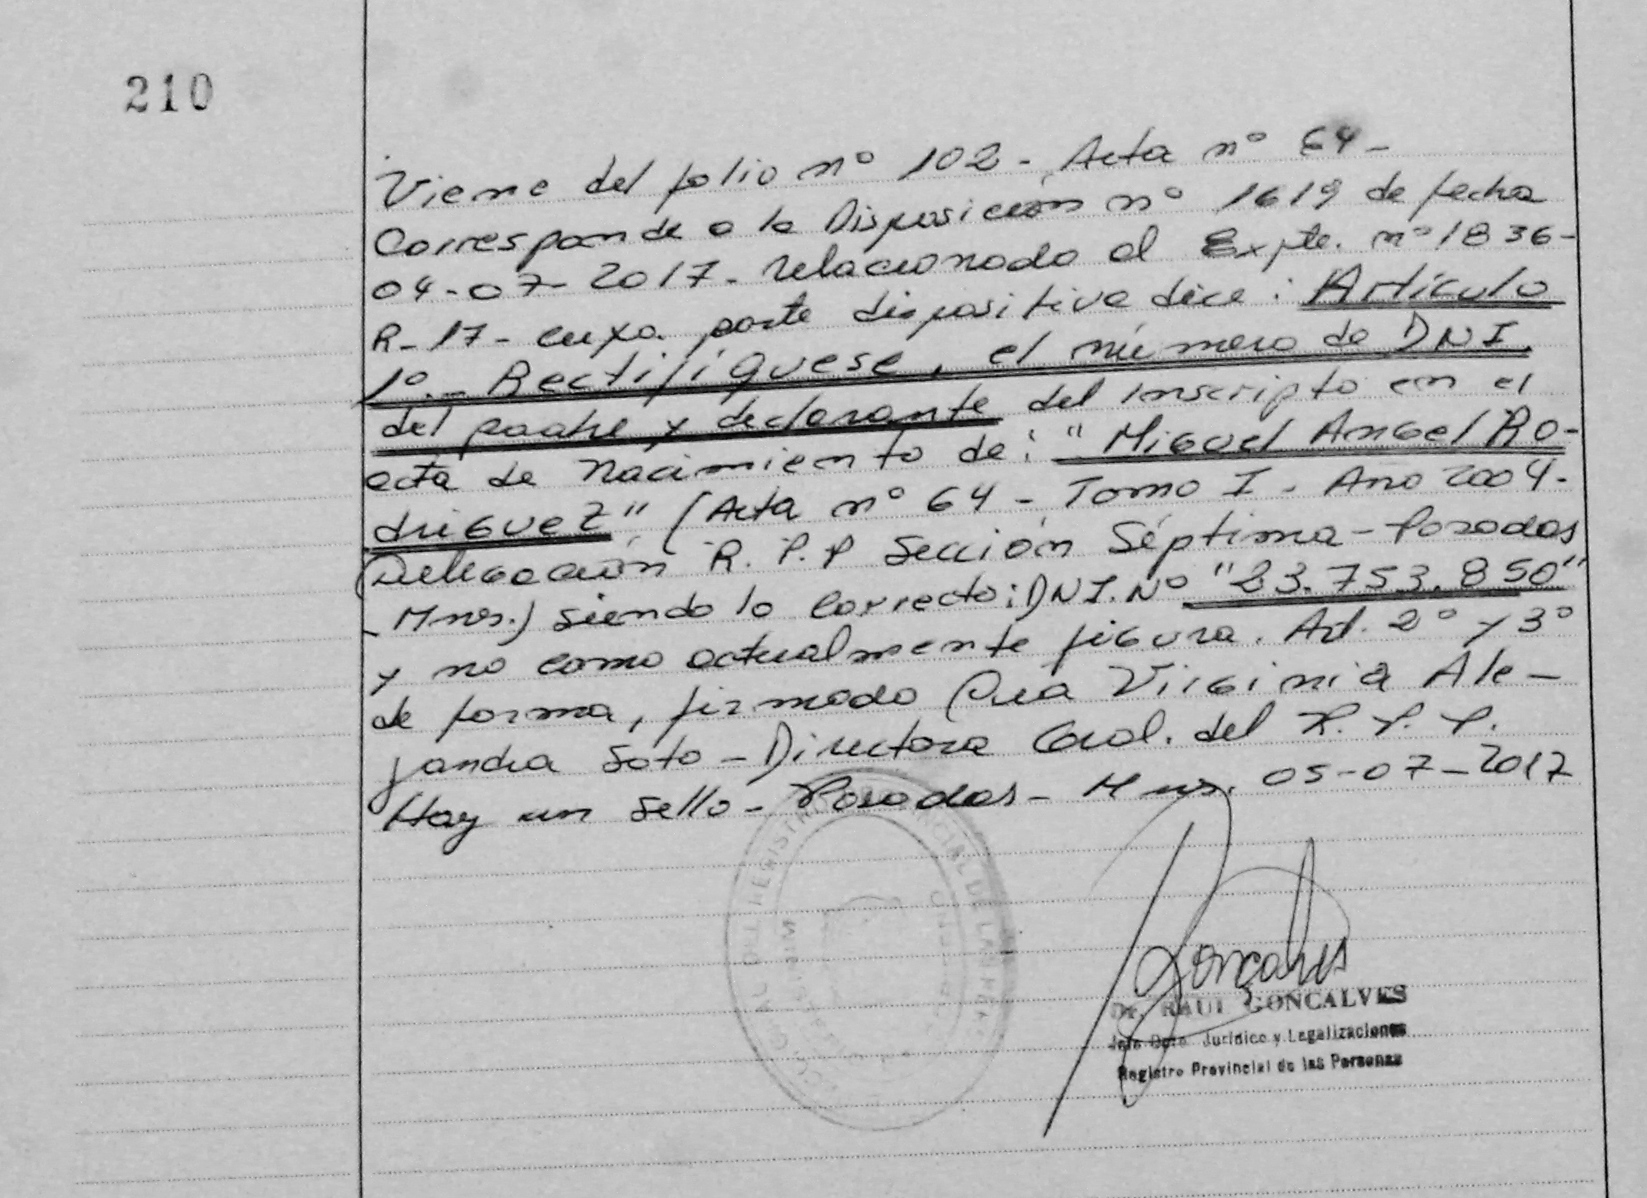 210
Viene del folio nº 102 - Acta nº 64 -
Corresponde a la Disposición nº 1619 de fecha
04-07-2017 - relacionado al Expte. nº 1836-
R-17 - cuya parte dispositiva dice : Artículo
1º.- Rectifíquese, el número de DNI,
del padre y declarante del Inscripto en el
acta de Nacimiento de : "Miguel Angel Ro-
driguez" (Acta nº 64 - Tomo I - Año 2004-
Delegación R.P.P Sección Séptima - Posadas
- Mnes.) siendo lo Correcto: DNI. Nº "23.753.850"
y no como actualmente figura. Art. 2º y 3º
de forma, firmado Dra Virginia Ale-
jandra Soto - Directora Gral. del R.P.P.
Hay un Sello - Posadas - Mnes. 05-07-2017
Goncalves
Dr. RAUL GONCALVES
Jefe Dpto. Jurídico y Legalizaciones
Registro Provincial de las Personas